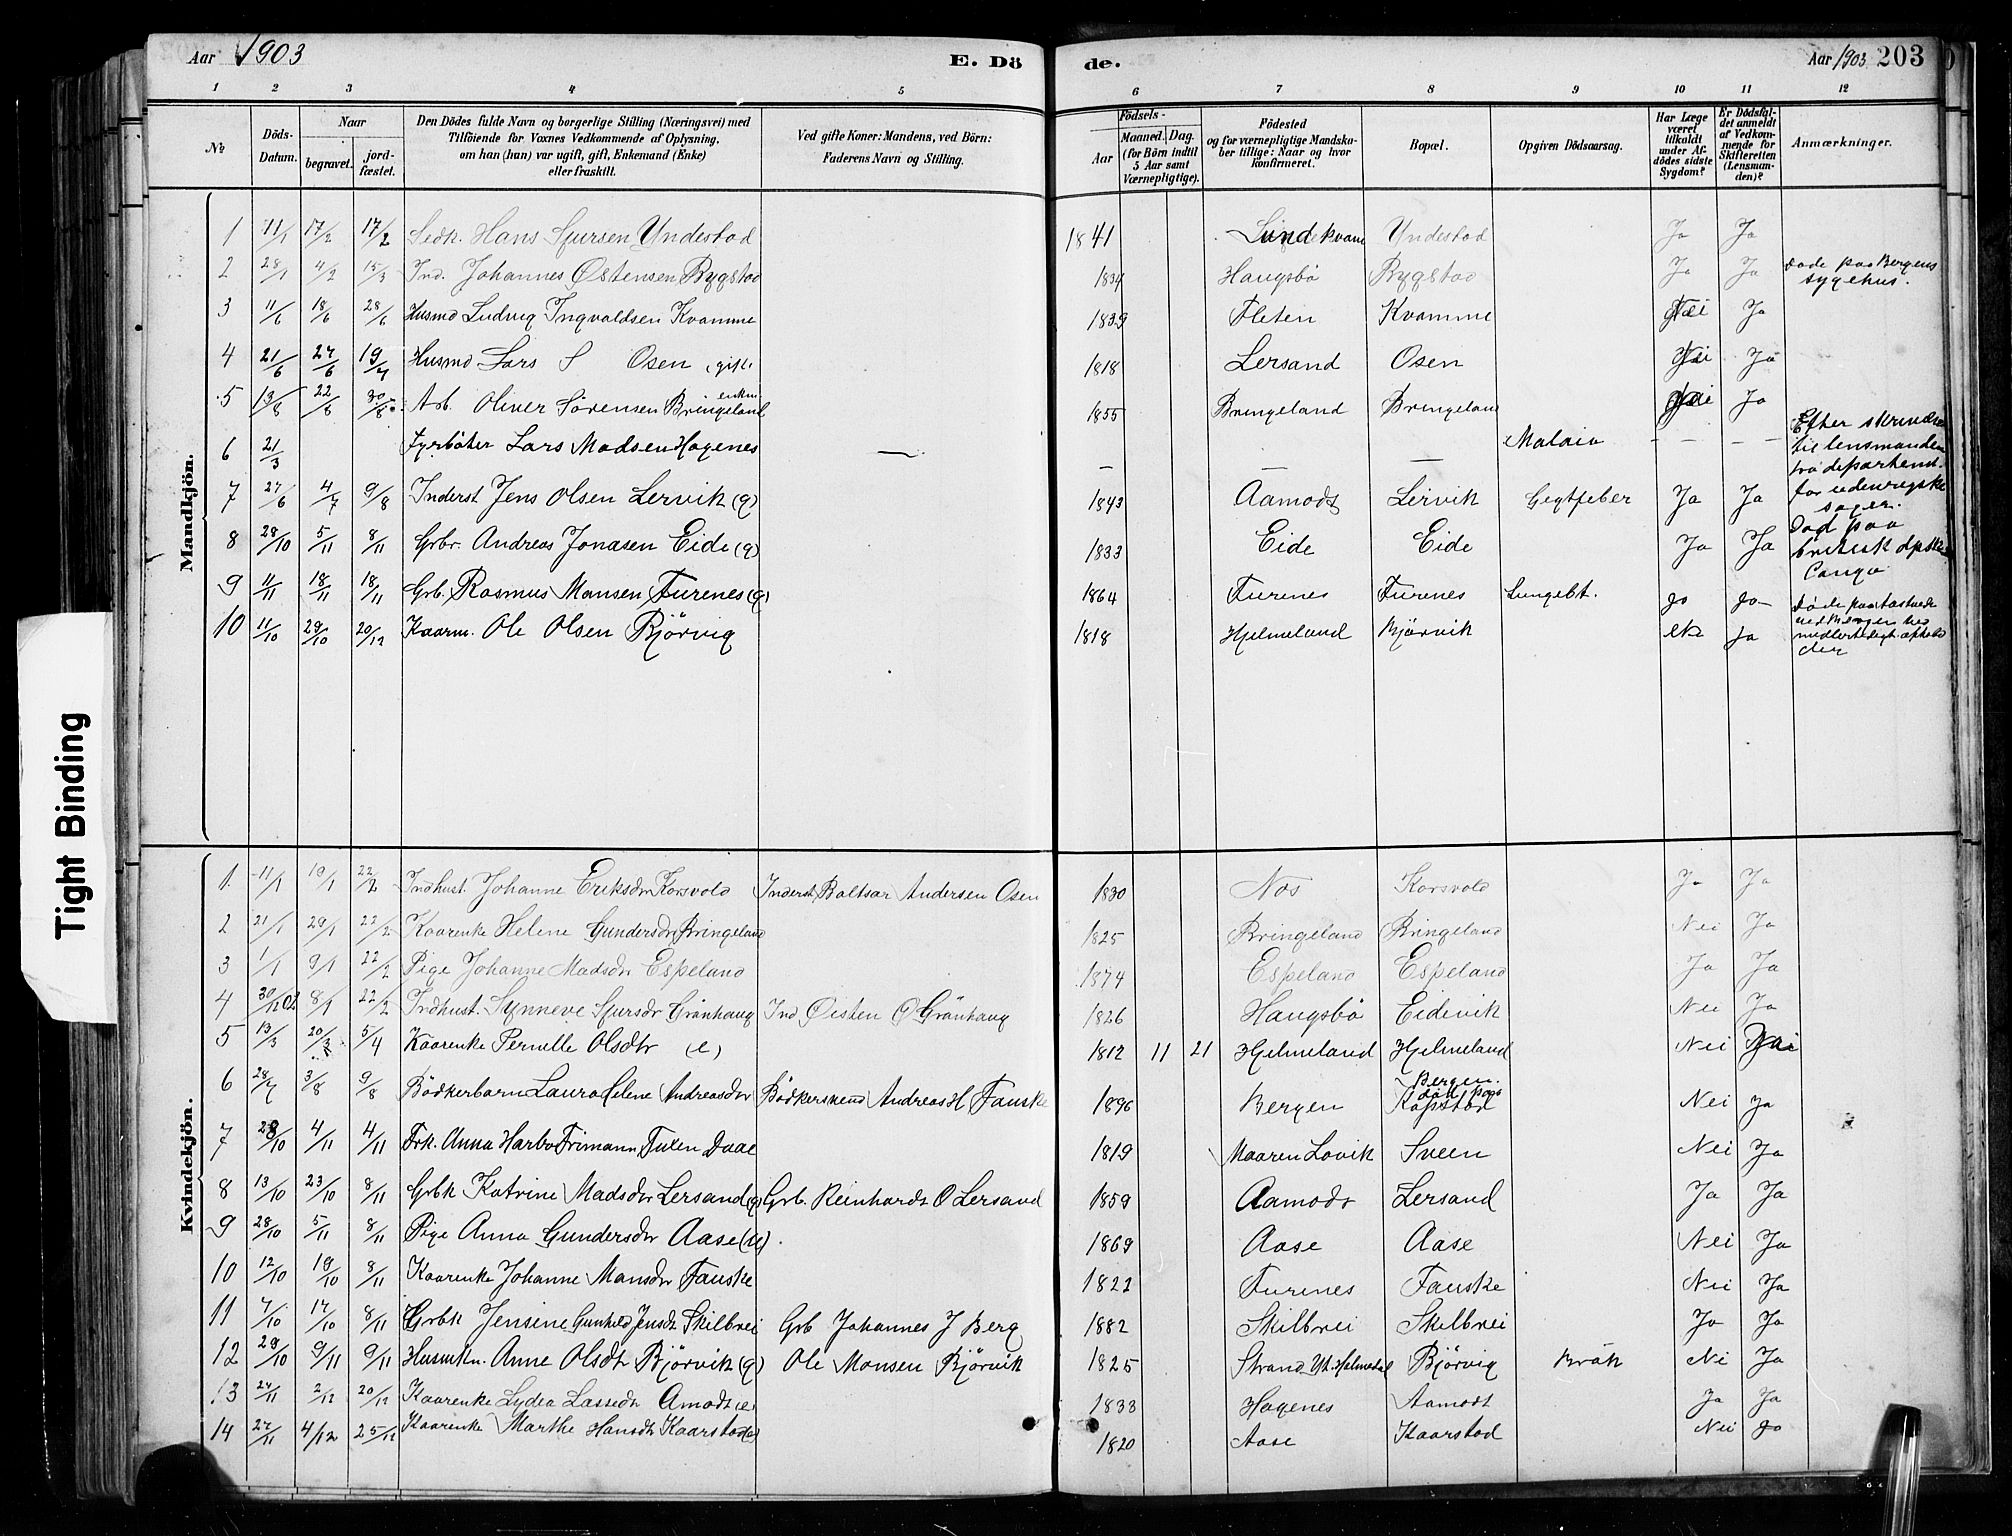 Aar 1903
E. Dö
de.
Aar 1903 203
1 2 3 4 5 6 7 8 9 10 11 12
№
Döds-Datum.
Naar
begravet.
jordfæstet.
Den Dödes fulde Navn og borgerlige Stilling (Næringsvei) med
Tilföiende for Voxnes Vedkommende af Oplysning,
om han (hun) var ugift, gift, Enkemand (Enke)
eller fraskilt.
Ved gifte Koner: Mandens, ved Börn:
Faderens Navn og Stilling.
Födsels-
Aar
Maaned. Dag.
(for Börn indtil
5 Aar samt
Værnepligtige).
Födested
og for værnepligtige Mandskaber tillige: Naar og hvor
konfirmeret.
Bopæl.
Opgiven Dödsaarsag.
Har Læge
været
tilkaldt
under Afdödes sidste
Sygdom?
Er Dödsfaldet anmeldt
af Vedkommende for
Skifteretten
(Lensmanden)?
Anmærkninger.
Mandkjön.
1 11/1 17/2 17/2 Hans Sjursen Yndestad 1841 Lindekvam Yndestad Ja Ja
2 28/1 4/2 15/3 Ind. Johannes Østensen Bygstad 1834 Haugsbö Bygstad Ja Ja Döde paa Bergens sygehus.
3 11/6 18/6 28/6 Husmd Ludvig Ingvaldsen Kvamme 1839 Fleten Kvamme Nei Ja
4 21/6 27/6 19/7 Husmd Lars S Osen (gift) 1818 Lersand Osen Nei Ja
5 13/8 22/8 30/8 Arb. Oliver Sörensen Bringeland enkm 1855 Bringeland Bringeland Nei Ja
6 21/3 Fyrböter Lars Madsen Hagenes — — — — Malaia — — — Efter skrivelse til lensmanden fra departemt. for udenrigske sager. Död paa britisk Congo
7 27/6 4/7 9/8 Inderst Jens Olsen Lervik (g) 1843 Aamodt Lervik Gigtfeber Ja Ja
8 28/10 5/11 8/11 Grbr. Andreas Jonasen Eide (g) 1833 Eide Eide Ja Ja
9 11/11 18/11 18/11 Grb. Rasmus Mansen Furenes (g) 1864 Furenes Furenes Lungebt. Ja Ja
10 11/10 29/10 20/12 Kaarm. Ole Olsen Björvig 1818 Hjelmeland Bjørvik Ja Döde paa ved Bergen ved midlertidigt ophold der
Kvindekjön.
1 11/1 19/1 22/2 Indhust. Johanne Eriksdr Korsvold Inderst Baltsar Andersen Osen 1830 Nos Korsvold Ja Ja
2 21/1 29/1 22/2 Kaarenke Helene Gundersdr Bringeland 1825 Bringeland Bringeland Nei Ja
3 1/1 9/1 22/2 Pige Johanne Madsdr Espeland 1874 Espeland Espeland Ja Ja
4 30/12 02 8/1 22/2 Indhust. Synneve Sjursdr Grönhaug Ind Öisten O Grönhaug 1826 Haugsbö Eidevik Nei Ja
5 13/3 20/3 5/4 Kaarenke Pernille Olsdtr (e) 1812 11 21 Hjelmeland Hjelmeland Nei Nei
6 28/7 3/8 9/8 Bödkerbarn Laura Helene Andreasdr Bödkersvend Andreas H Fauske 1896 Bergen Bergen. död paa Kapstad Nei Ja
7 28/10 4/11 4/11 Frk. Anna Harbo Frimann Tuxen Daae 1819 Maaren Lavik Sveen Nei Ja
8 13/10 23/10 8/11 Grbk Katrine Madsdr Lersand (g) Grb. Reinhardt O Lersand 1859 Aamodt Lersand Ja Ja
9 28/10 5/11 8/11 Pige Anna Gundersdr Aase (u). 1869 Aase Aase Nei Ja
10 12/10 19/10 8/11 Kaarenke Johanne Mansdr Fauske 1822 Furenes Fauske Nei Ja
11 7/10 17/10 8/11 Grbk Jensine Gunhild Jensdt Skilbrei Grb Johannes J Berg 1882 Skilbrei Skilbrei Ja Ja
12 29/10 9/11 9/11 Husmkn. Anne Olsdtr Bjørvik (g) Ole Monsen Bjørvik 1825 Strand Yt. Holmedal Bjørvig Bråk Nei Ja
13 24/11 2/12 20/12 Kaarenke Lydia Lassedt Amodt (e) 1838 Hagenes Aamodt Ja Ja
14 27/11 4/12 25/12 Kaarenke Marthe Hansdt Kaarstad (e) 1820 Aase Kaarstad Nei Ja
Tight Binding